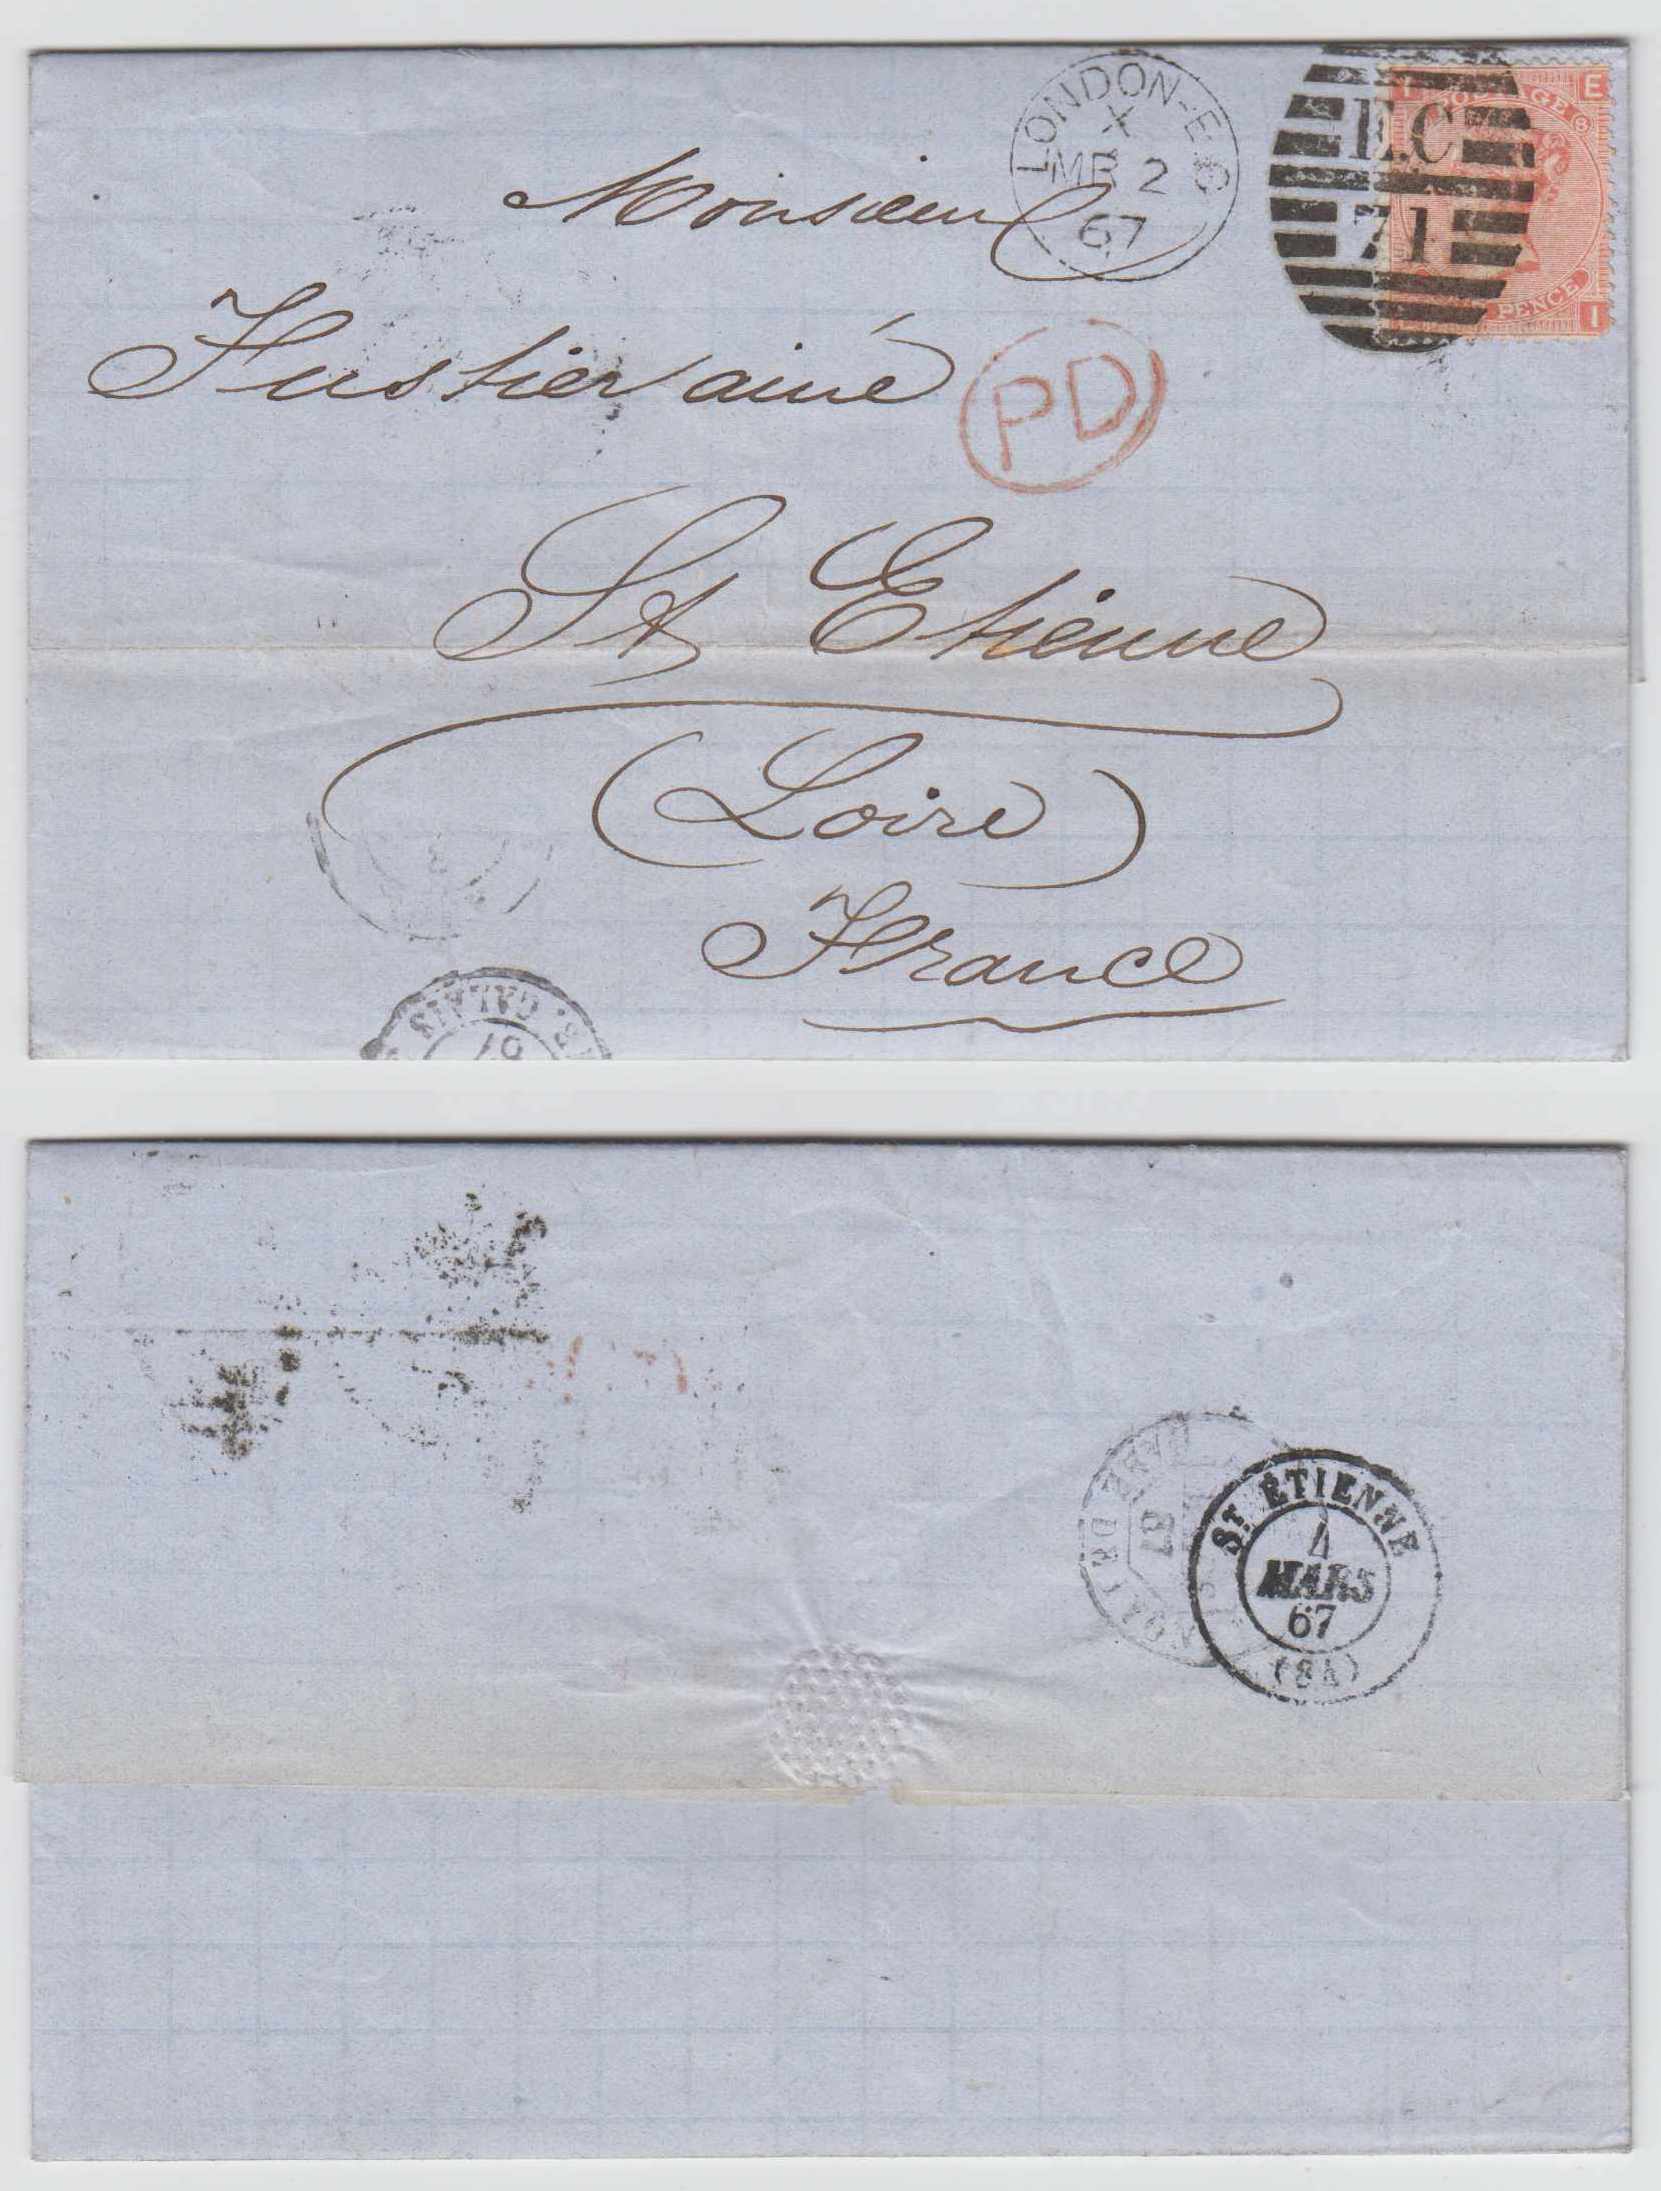 LONDON-E.C
X
MR 2
67
E.C
71
I E
POSTAGE
8
PENCE
I
Monsieur
Fustier ainé
PD
St Etienne
(Loire)
France
CALAIS
67
67
ST. ETIENNE
4
MARS
67
(84)